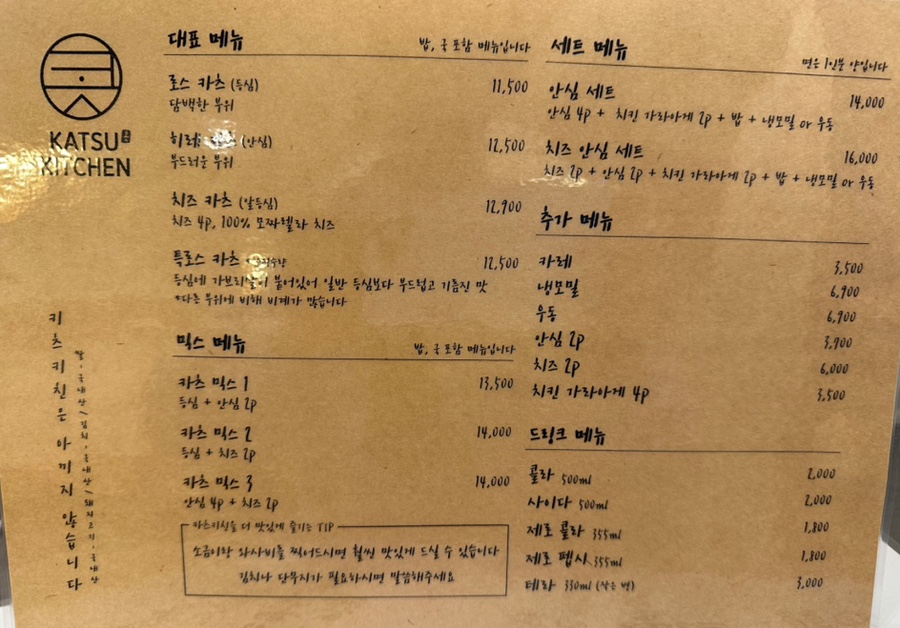 KATSU
KITCHEN
대표 메뉴
밥, 국 포함 메뉴입니다
로스 카츠 (등심)
11,500
담백한 부위
히레 (안심)
12,500
부드러운 부위
치즈 카츠 (알등심)
12,900
치즈 4p, 100% 모짜렐라 치즈
특로스 카츠
12,500
등심에 가브리살이 붙어있어 일반 등심보다 부드럽고 기름진 맛
*다른 부위에 비해 비계가 많습니다
믹스 메뉴
밥, 국 포함 메뉴입니다
카츠 믹스 1
13,500
등심 + 안심 2p
카츠 믹스 2
14,000
등심 + 치즈 2p
카츠 믹스 3
14,000
안심 4p + 치즈 2p
카츠키친을 더 맛있게 즐기는 TIP
소금이랑 와사비를 찍어드시면 훨씬 맛있게 드실 수 있습니다
김치나 단무지가 필요하시면 말씀해주세요
세트 메뉴
면은 1인분 양입니다
안심 세트
14,000
안심 4p + 치킨 가라아게 2p + 밥 + 냉모밀 or 우동
치즈 안심 세트
16,000
치즈 2p + 안심 2p + 치킨 가라아게 2p + 밥 + 냉모밀 or 우동
추가 메뉴
카레
3,500
냉모밀
6,900
우동
6,900
안심 2p
3,900
치즈 2p
6,000
치킨 가라아게 4p
3,500
드링크 메뉴
콜라 500ml
2,000
사이다 500ml
2,000
제로 콜라 355ml
1,800
제로 펩시 355ml
1,800
테라 330ml (작은 병)
3,000
키츠키친은 아끼지 않습니다
쌀:국내산/김치:국내산/돼지고기:국내산